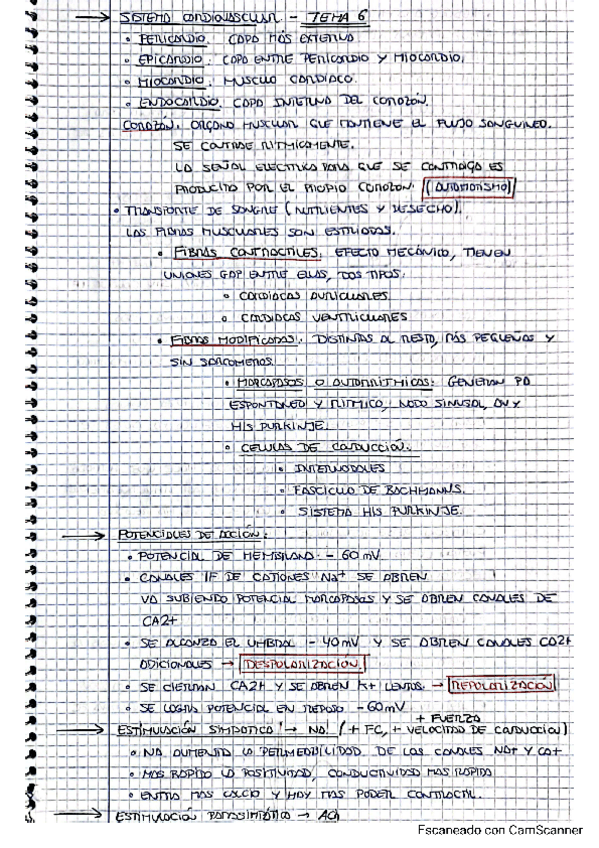 → SISTEMA CARDIOVASCULAR - TEMA 6
• PERICARDIO. CAPA MÁS EXTERNA
• EPICARDIO. CAPA ENTRE PERICARDIO Y MIOCARDIO.
• MIOCARDIO. MUSCULO CARDIACO.
• ENDOCARDIO. CAPA INTERNA DEL CORAZÓN.
CORAZÓN. ORGANO MUSCULAR QUE MANTIENE EL FLUJO SANGUINEO.
SE CONTRAE RITMICAMENTE.
LA SEÑAL ELECTRICA PARA QUE SE CONTRAIGA ES
PRODUCIDA POR EL PROPIO CORAZON. (AUTOMATISMO)
• TRANSPORTE DE SANGRE (NUTRIENTES Y DESECHO).
LAS FIBRAS MUSCULARES SON ESTRIADAS.
• FIBRAS CONTRACTILES. EFECTO MECÁNICO, TIENEN
UNIONES GAP ENTRE ELLAS, DOS TIPOS.
• CARDIACAS AURICULARES
• CARDIACAS VENTRICULARES
• FIBRAS MODIFICADAS. DISTINTAS AL RESTO, MÁS PEQUEÑAS Y
SIN SARCOMEROS.
• MARCAPASOS O AUTORRITMICAS: GENERAN PA
ESPONTANEO Y RITMICO, NODO SINUSAL, AV Y
HIS PURKINJE.
• CELULAS DE CONDUCCIÓN.
• INTERNODALES
• FASCICULO DE BACHMANNS.
• SISTEMA HIS PURKINJE.
→ POTENCIALES DE ACCIÓN:
• POTENCIAL DE MEMBRANA - 60 mV
• CANALES IF DE CATIONES Na+ SE ABREN
VA SUBIENDO POTENCIAL MARCAPASOS Y SE ABREN CANALES DE
CA2+
• SE ALCANZA EL UMBRAL - 40 mV Y SE ABREN CANALES CA2+
ADICIONALES → DESPOLARIZACIÓN.
• SE CIERRAN CA2+ Y SE ABREN K+ LENTOS. → REPOLARIZACIÓN
• SE LOGRA POTENCIAL EN REPOSO - 60 mV
+ FUERZA
→ ESTIMULACIÓN SIMPATICA → NA (+ FC, + VELOCIDAD DE CONDUCCION)
• NA AUMENTA LA PERMEABILIDAD DE LOS CANALES NA+ Y CA+
• MAS RAPIDO LA POSITIVIDAD, CONDUCTIVIDAD MAS RAPIDA
• ENTRA MAS CALCIO Y HAY MAS PODER CONTRACTIL.
→ ESTIMULACIÓN PARASIMPÁTICA → ACh
Escaneado con CamScanner